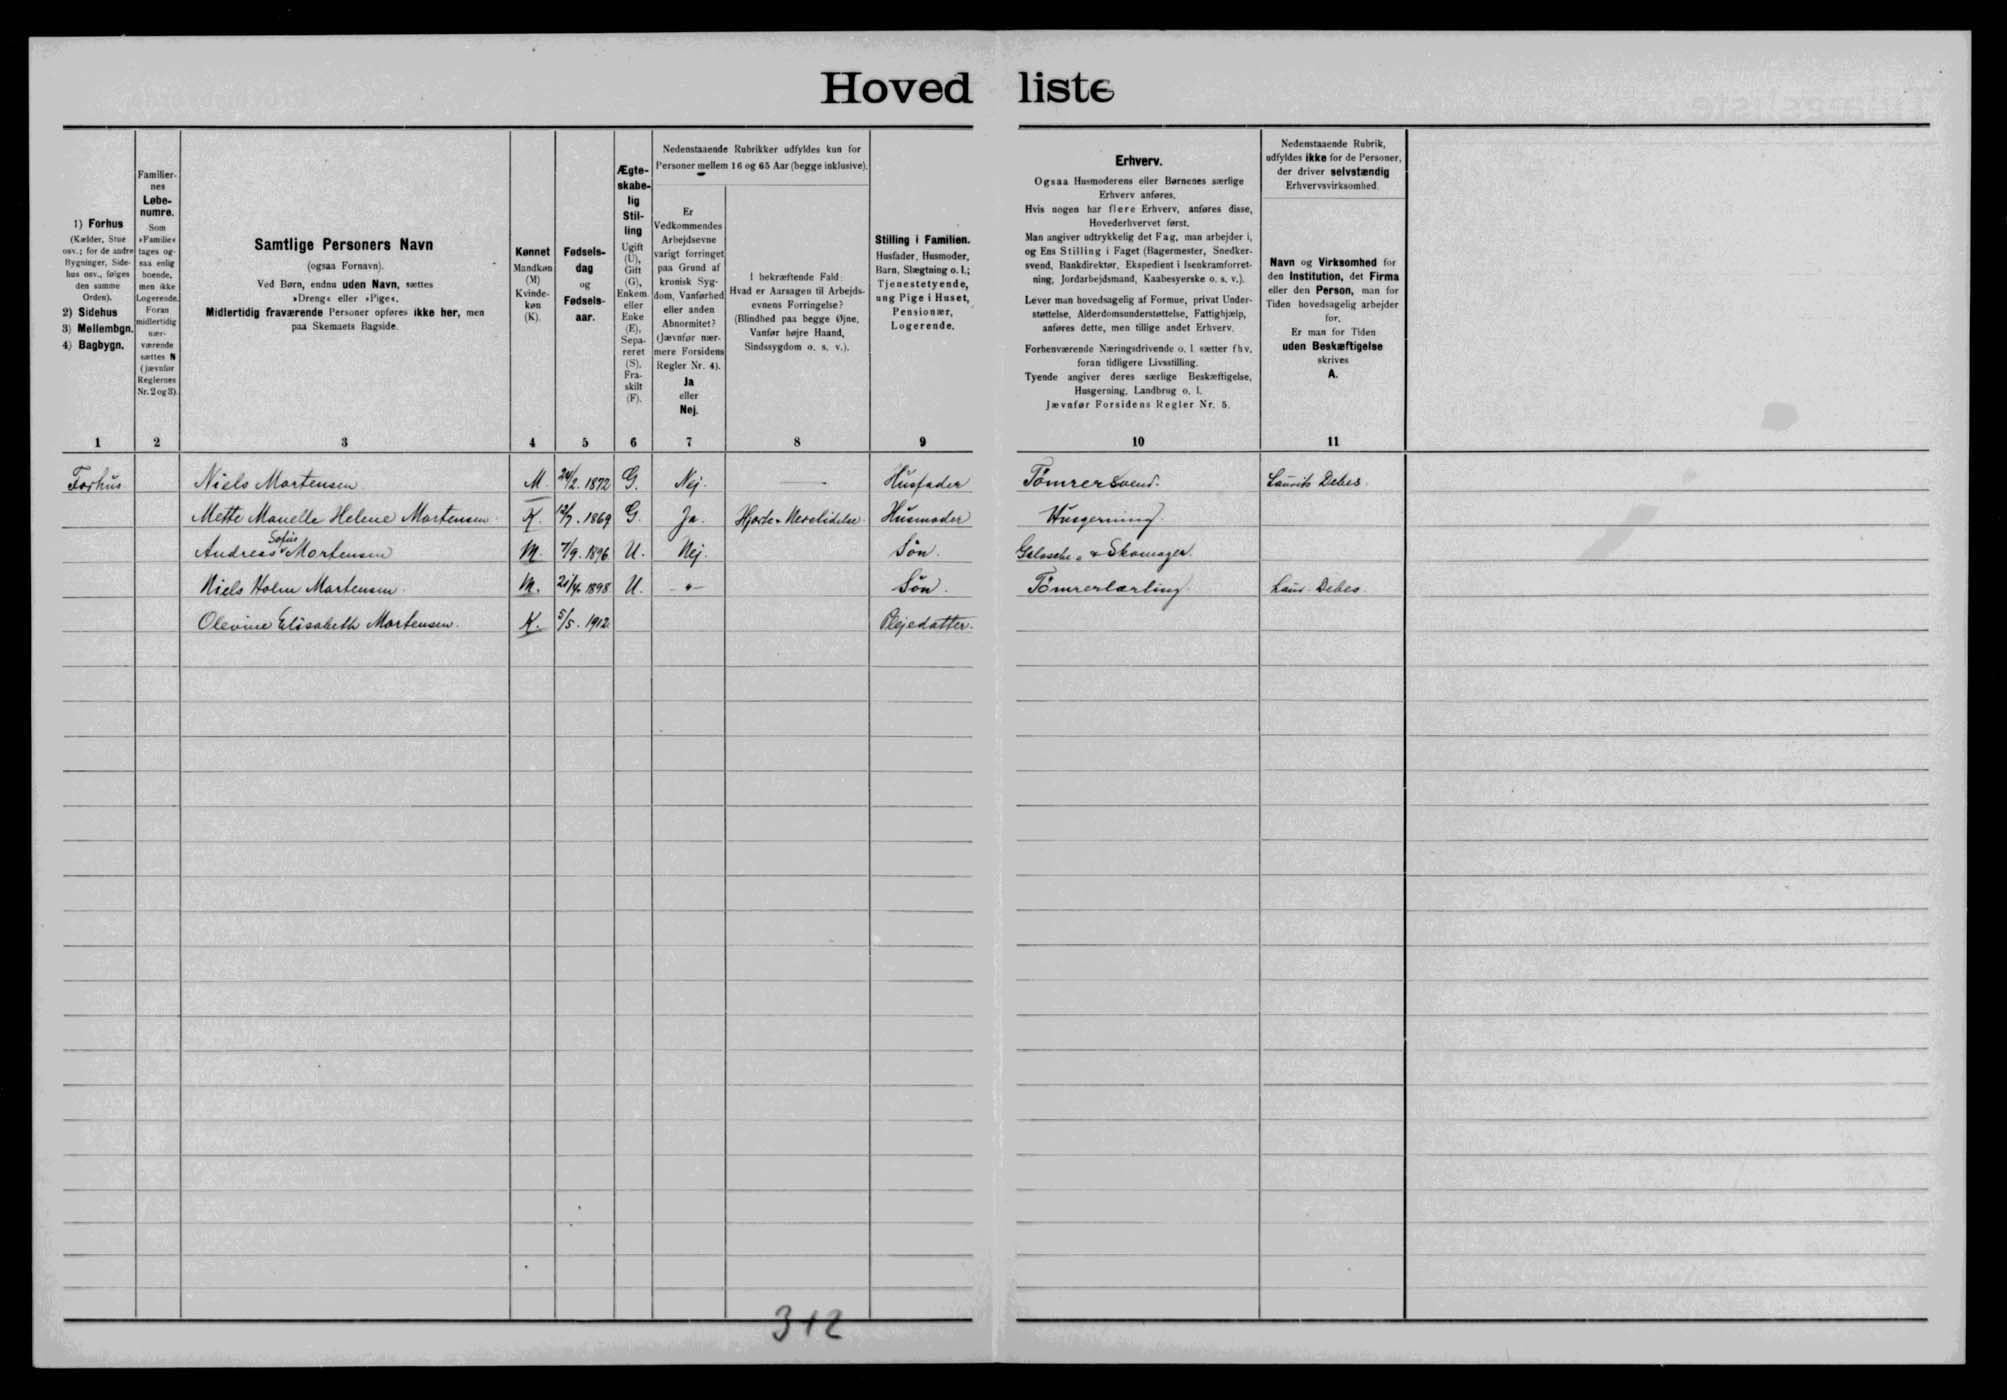 Hovedliste
1) Forhus
(Kælder, Stue
osv.; for de andre
Bygninger, Side-
hus osv., følges
den samme
Orden).
2) Sidehus
3) Mellembgn.
4) Bagbygn.
Familier-
nes
Løbe-
numre.
Som
»Familie«
tages og-
saa enlig
boende,
men ikke
Logerende.
Foran
midlertidig
nær-
værende
sættes N
(jævnfør
Reglernes
Nr. 2 og 3).
Samtlige Personers Navn
(ogsaa Fornavn).
Ved Børn, endnu uden Navn, sættes
»Dreng« eller »Pige«.
Midlertidig fraværende Personer opføres ikke her, men
paa Skemaets Bagside.
Kønnet
Mandkøn
(M)
Kvinde-
køn
(K).
Fødsels-
dag
og
Fødsels-
aar.
Ægte-
skabe-
lig
Stil-
ling
Ugift
(U),
Gift
(G),
Enkem.
eller
Enke
(E),
Sepa-
reret
(S),
Fra-
skilt
(F).
Nedenstaaende Rubrikker udfyldes kun for
Personer mellem 16 og 65 Aar (begge inklusive).
Er
Vedkommendes
Arbejdsevne
varigt forringet
paa Grund af
kronisk Syg-
dom, Vanførhed
eller anden
Abnormitet?
(Jævnfør nær-
mere Forsidens
Regler Nr. 4).
Ja
eller
Nej.
I bekræftende Fald:
Hvad er Aarsagen til Arbejds-
evnens Forringelse?
(Blindhed paa begge Øjne,
Vanfør højre Haand,
Sindssygdom o. s. v.).
Stilling i Familien.
Husfader, Husmoder,
Barn, Slægtning o. l.;
Tjenestetyende,
ung Pige i Huset,
Pensionær,
Logerende.
Erhverv.
Ogsaa Husmoderens eller Børnenes særlige
Erhverv anføres.
Hvis nogen har flere Erhverv, anføres disse,
Hovederhvervet først.
Man angiver udtrykkelig det Fag, man arbejder i,
og Ens Stilling i Faget (Bagermester, Snedker-
svend, Bankdirektør, Ekspedient i Isenkramforret-
ning, Jordarbejdsmand, Kaabesyerske o. s. v.).
Lever man hovedsagelig af Formue, privat Under-
støttelse, Alderdomsunderstøttelse, Fattighjælp,
anføres dette, men tillige andet Erhverv.
Forhenværende Næringsdrivende o. l. sætter fhv.
foran tidligere Livsstilling.
Tyende angiver deres særlige Beskæftigelse,
Husgerning, Landbrug o. l.
Jævnfør Forsidens Regler Nr. 5.
Nedenstaaende Rubrik,
udfyldes ikke for de Personer,
der driver selvstændig
Erhvervsvirksomhed.
Navn og Virksomhed for
den Institution, det Firma
eller den Person, man for
Tiden hovedsagelig arbejder
for.
Er man for Tiden
uden Beskæftigelse
skrives
A.
1 2 3 4 5 6 7 8 9 10 11
Forhus Niels Mortensen M. 24/2. 1872 G. Nej. — Husfader Tömrersvend. Laurits Debes.
Mette Manelle Helene Mortensen K. 12/7. 1869 G. Ja. Hjerte- Nervelidelse. Husmoder Husgerning.
Andreas Sofus Mortensen M. 7/9. 1896 U. Nej. Sön. Galosche- & Skomager.
Niels Holm Mortensen. M. 21/4. 1898. U. -"- Sön. Tömrerlærling. Laur. Debes.
Olevine Elisabeth Mortensen. K. 5/5. 1912. Plejedatter.
312